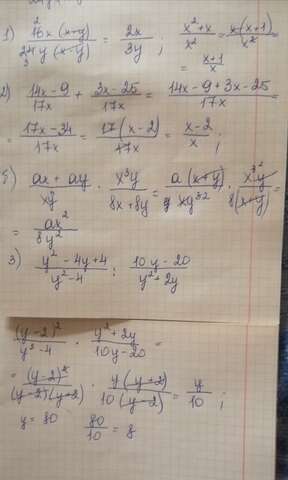 1) 16x (x-y) / 24y (x-y) = 2x / 3y ; x² + x / x² = x (x+1) / x² =
= x+1 / x
2) 14x - 9 / 17x + 3x - 25 / 17x = 14x - 9 + 3x - 25 / 17x =
= 17x - 34 / 17x = 17 (x - 2) / 17x = x - 2 / x ;
ax + ay / xy · x³y / 8x + 8y = a (x+y) / · x³y / 8(x+y) =
= ax² / 8y²
3) y² - 4y + 4 / y² - 4 : 10y - 20 / y² + 2y
(y - 2)² / y² - 4 · y² + 2y / 10y - 20 =
= (y - 2)² / (y - 2)(y + 2) · y (y + 2) / 10 (y - 2) = y / 10 ;
y = 80 80 / 10 = 8